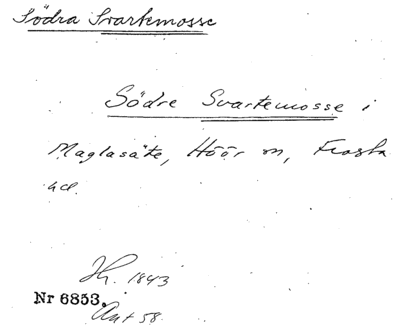 Södra Svartemosse
Södre Svartemosse i
Maglasäte, Höör sn, Frosta
hd.
Ih. 1843
Nr 6853.
Ant 58